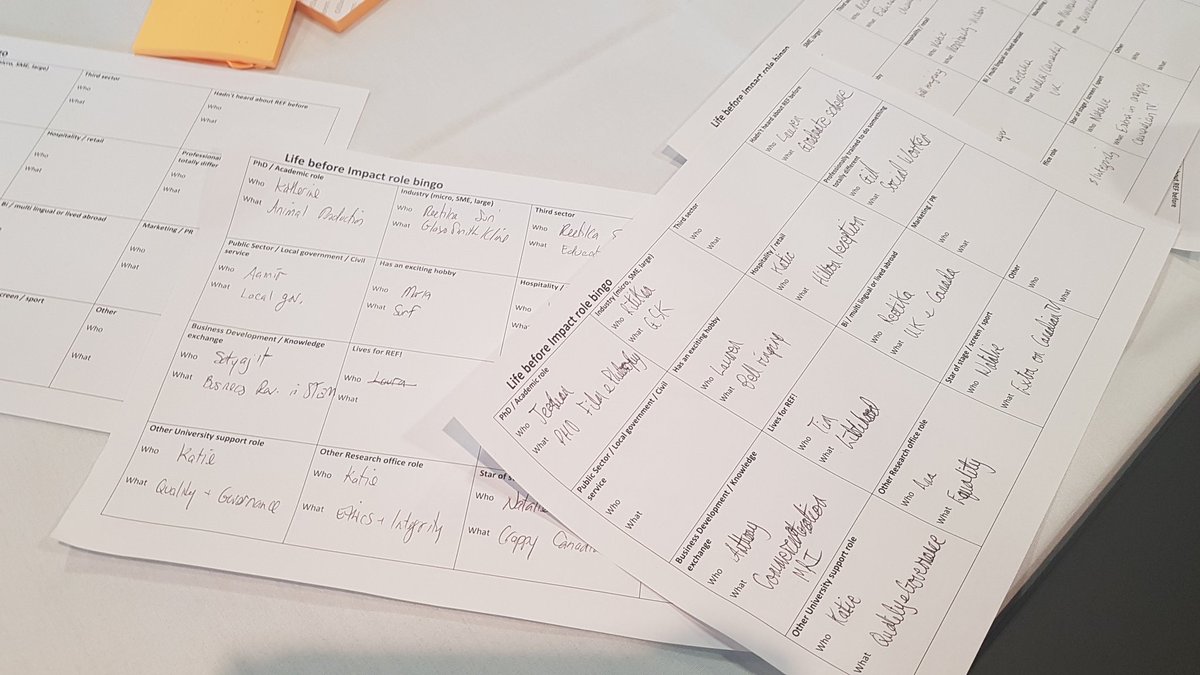 (micro, SME, large)
Third sector
Who
What
Hadn't heard about REF before
Who
What
Hospitality / retail
Who
What
Professional
totally differ
Who
What
Bi / multi lingual or lived abroad
Who
What
Marketing / PR
Who
What
screen / sport
Other
Who
What
Life before Impact role bingo
PhD / Academic role
Who Katherine
What Animal Production
Industry (micro, SME, large)
Who Reetika Suri
What GlaxoSmithKline
Third sector
Who Reetika S
What Educat
Public Sector / Local government / Civil
service
Who Aamir
What Local gov.
Has an exciting hobby
Who Maria
What Surf
Hospitality /
Who
What
Business Development / Knowledge
exchange
Who Satyajit
What Business Dev. in STEM
Lives for REF!
Who Laura
What
Other University support role
Who Katie
What Quality + Governance
Other Research office role
Who Katie
What Ethics + Integrity
Star of
Who Natalie
What Crappy Canadian
Life before Impact role bingo
PhD / Academic role
Who
What PhD Film & Philosophy
Industry (micro, SME, large)
Who
What GSK
Third sector
Who
What
Hadn't heard about REF before
Who Lauren
What Graduate scheme
Public Sector / Local government / Civil
service
Who
What
Has an exciting hobby
Who Lauren
What Bell ringing
Hospitality / retail
Who Katie
What Hilton reception
Professionally trained to do something
totally different
Who Gill
What Social Worker
Business Development / Knowledge
exchange
Who Anthony
What
Lives for REF!
Who Tim
What
Bi / multi lingual or lived abroad
Who Reetika
What UK & Canada
Marketing / PR
Who
What
Other University support role
Who Katie
What Quality & Governance
Other Research office role
Who
What Equality
Star of stage / screen / sport
Who Natalie
What Extra on Canadian TV
Other
Who
What
Life before Impact role bingo
SME, large)
Third sector
Who
What
Hospitality / retail
Who Katie
What
Bell ringing
Bi / multi lingual or lived abroad
Who Reetika
What India/Canada/
UK
Marketing /
Who
What
Star of stage / screen / sport
Who Natalie
What Extra in crappy
Canadian TV
Other
Who
What
office role
& Integrity